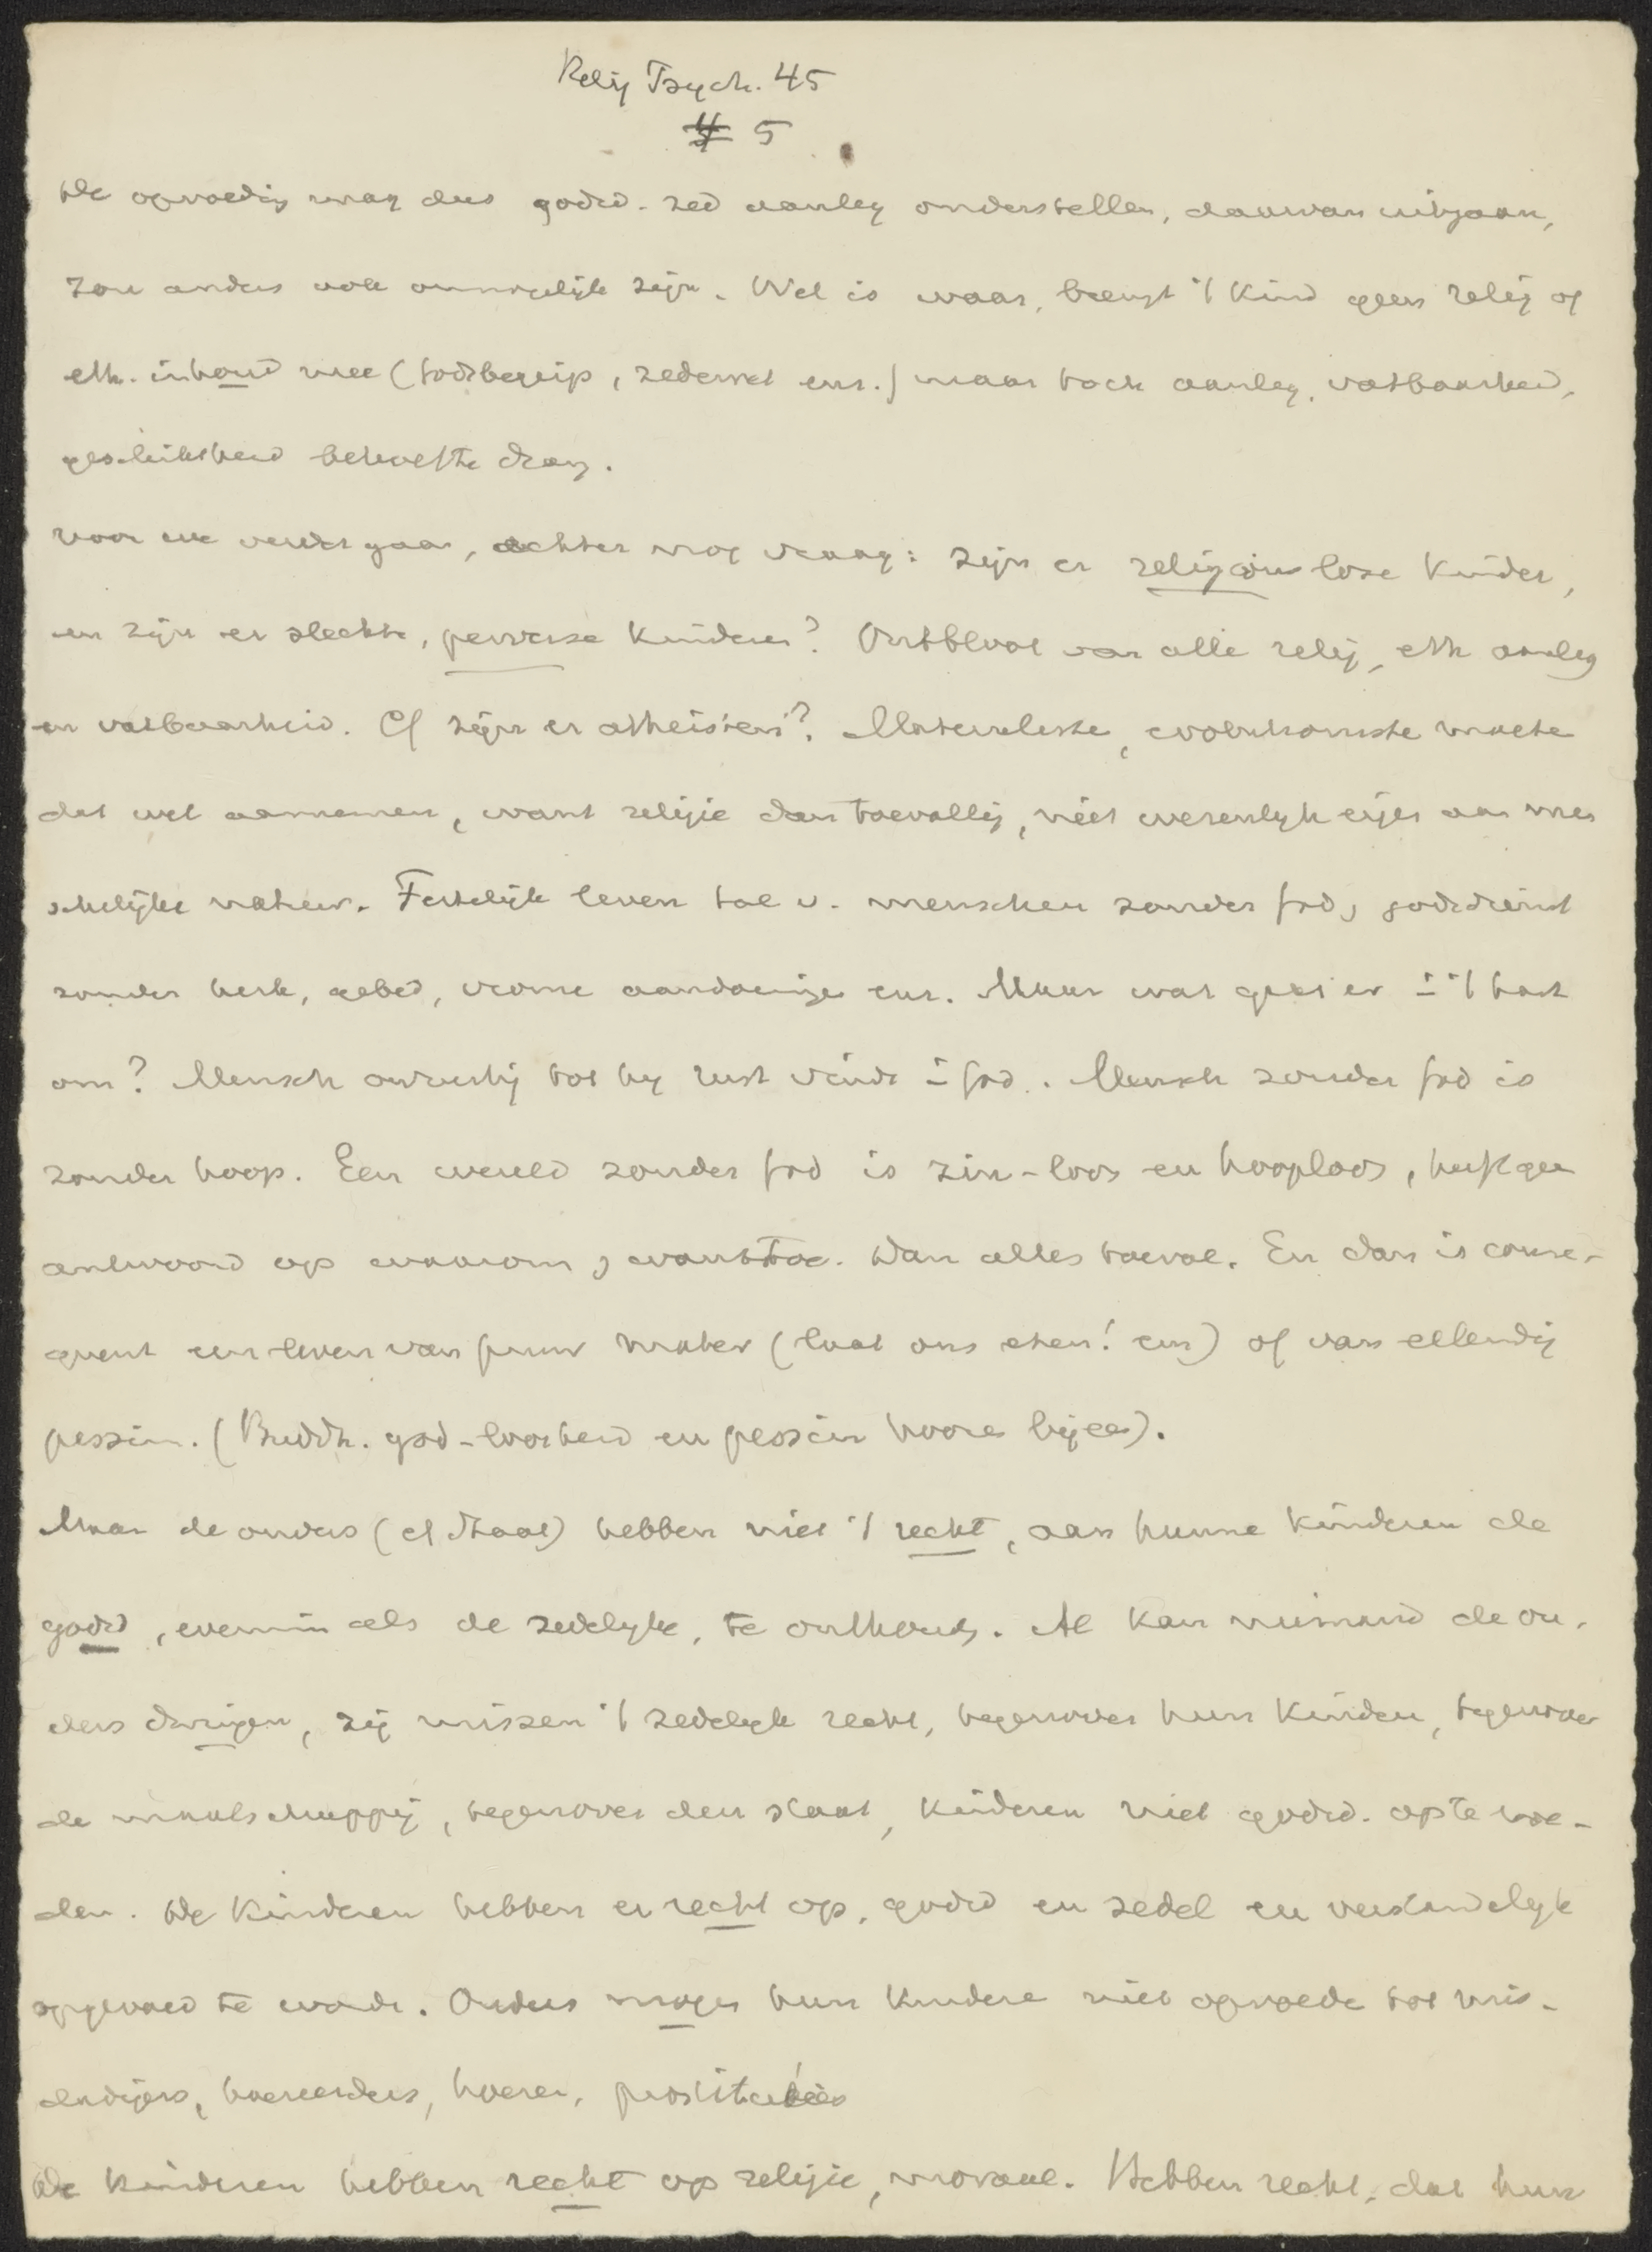 Relig Psych. 45
5
De opvoeding mag dus godsd. zed aanleg onderstellen, daarvan uitgaan,
zou anders ook onmogelijk zijn. Wel is waar, brengt 't kind geen relig of
eth. inhoud mee (Godsbegrip, zedewet enz.) maar toch aanleg, vatbaarheid,
geschiktheid behoefte drang.
Voor we verder gaan, echter nog vraag: zijn er religieuslose kinder,
en zijn er slechte, perverse kinderen? Ontbloot van alle relig, eth aanleg
en vatbaarheid. Of zijn er atheisten? Materialiste, evolutioniste moete
dat wel aannemen, want religie dan toevallig, niet wezenlijk eigen aan men
schelijke natuur. Feitelijk leven tal v. menschen zonder God, godsdienst
zonder kerk, gebed, vrome aandoeninge enz. Maar wat gaat er in 't hart
om? Mensch onrustig tot hij rust vindt in God. Mensch zonder God is
zonder hoop. Een wereld zonder God is zin-loos en hooploos, heeft geen
antwoord op waarom, waartoe. Dan alles toeval. En dan is conse-
quent een leven van puur mater (laat ons eten! enz) of van ellendig
pessim. (Buddh. god-loosheid en pessim hoore bijeen).
Maar de ouders (of Staat) hebben niet 't recht, aan hunne kinderen de
godsd, evenmin als de zedelijke, te onthouden. Al kan niemand de ou-
ders dwingen, zij missen 't zedelijk recht, tegenover hun kinderen, tegenover
de maatschappij, tegenover den staat, kinderen niet godsd. op te voe-
den. De kinderen hebben er recht op, godsd en zedel en verstandelijk
opgevoed te worde. Ouders mogen hun kindere niet opvoede tot mis-
dadigers, hoereerders, hoeren, prostituées
De kinderen hebben recht op religie, moraal. Hebben recht, dat hun